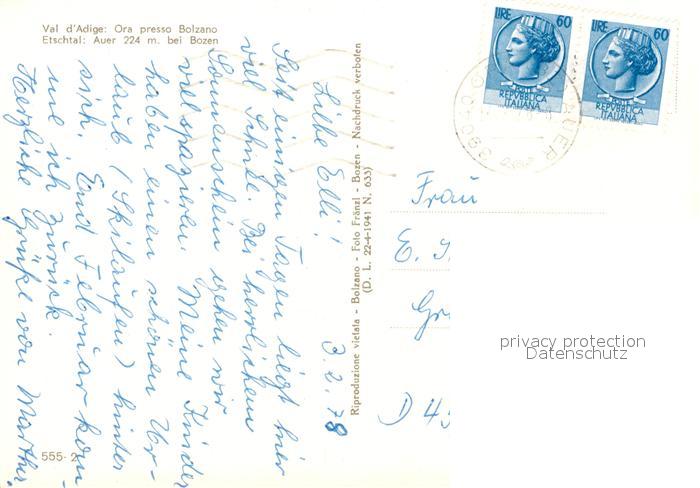 Val d'Adige: Ora presso Bolzano
Etschtal: Auer 224 m. bei Bozen
LIRE 60
REPVBBLICA
ITALIANA
LIRE 60
REPVBBLICA
ITALIANA
AUER
3.2.78
Liebe Elli!
Seit einigen Tagen liegt hier
viel Schnee. Bei herrlichem
Sonnenschein gehen wir
viel spazieren. Meine Kinder
haben einen schönen Ur-
laub (Skilaufen) hinter
sich. End Februar kom-
me ich zurück.
Herzliche Grüße von Martha.
Riproduzione vietata - Bolzano - Foto Fränzl - Bozen - Nachdruck verboten
(D. L. 22-4-1941 N. 633)
Frau
E.
Gr
D 45
555-2
privacy protection
Datenschutz